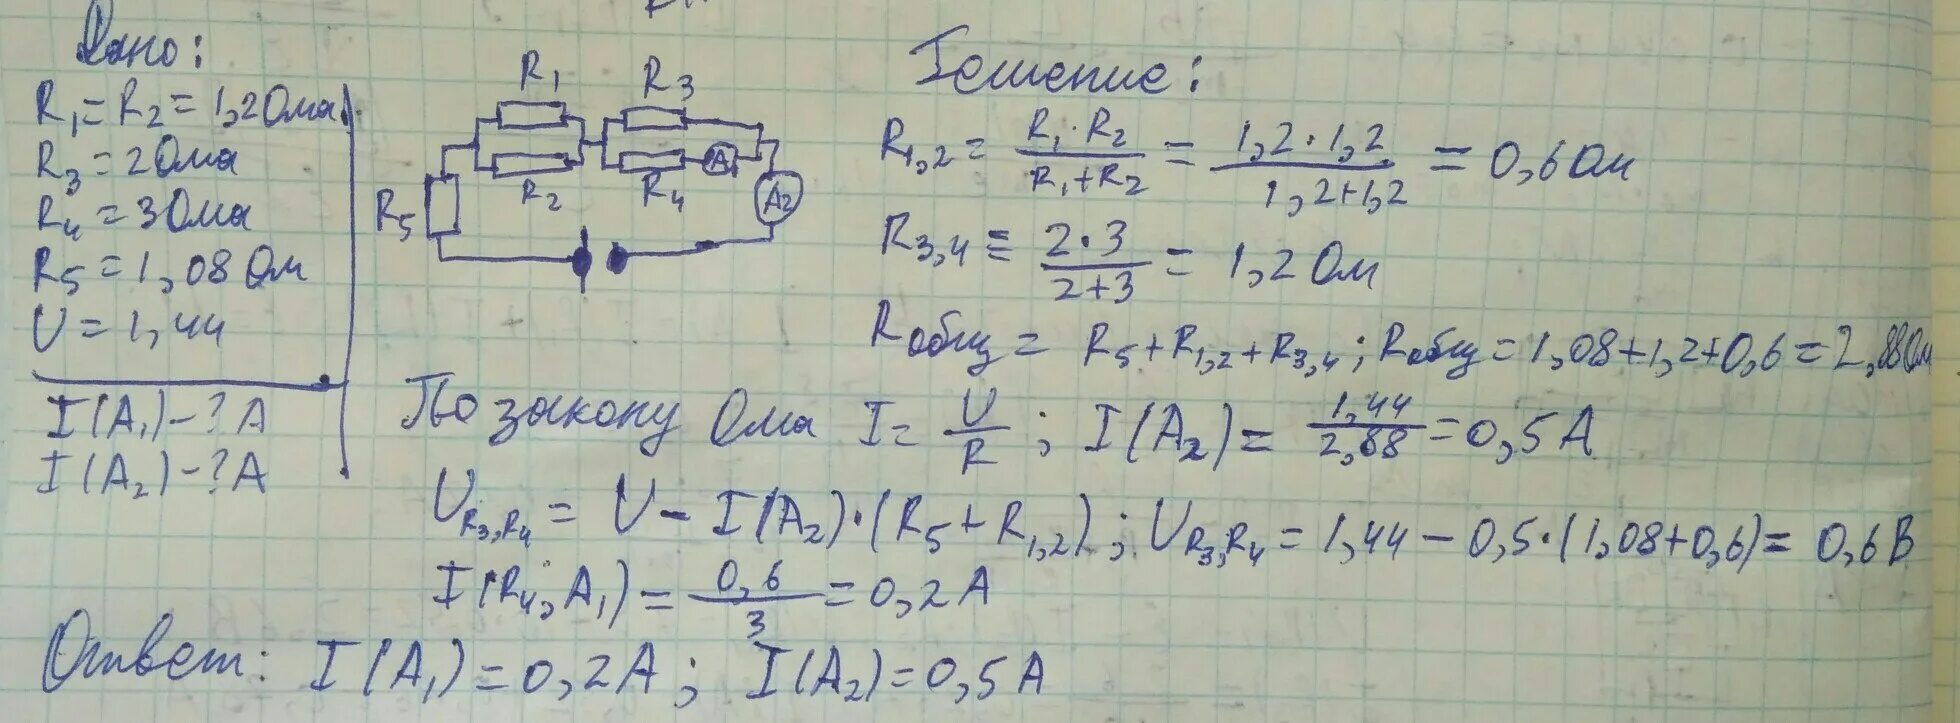 Дано:
R₁ = R₂ = 1,2 Ома
R₃ = 2 Ома
R₄ = 3 Ома
R₅ = 1,08 Ом
U = 1,44
I(A₁) - ? A
I(A₂) - ? A
R₁
R₃
R₂
R₄
A
A₂
R₅
Решение:
R₁,₂ = (R₁ · R₂)/(R₁ + R₂) = (1,2 · 1,2)/(1,2 + 1,2) = 0,6 Ом
R₃,₄ = (2 · 3)/(2 + 3) = 1,2 Ом
Rобщ = R₅ + R₁,₂ + R₃,₄; Rобщ = 1,08 + 1,2 + 0,6 = 2,88 Ом
По закону Ома I = U/R; I(A₂) = 1,44/2,88 = 0,5 A
U_R₃,R₄ = U - I(A₂) · (R₅ + R₁,₂); U_R₃,R₄ = 1,44 - 0,5 · (1,08 + 0,6) = 0,6 В
I(R₄, A₁) = 0,6/3 = 0,2 A
Ответ: I(A₁) = 0,2 A; I(A₂) = 0,5 A